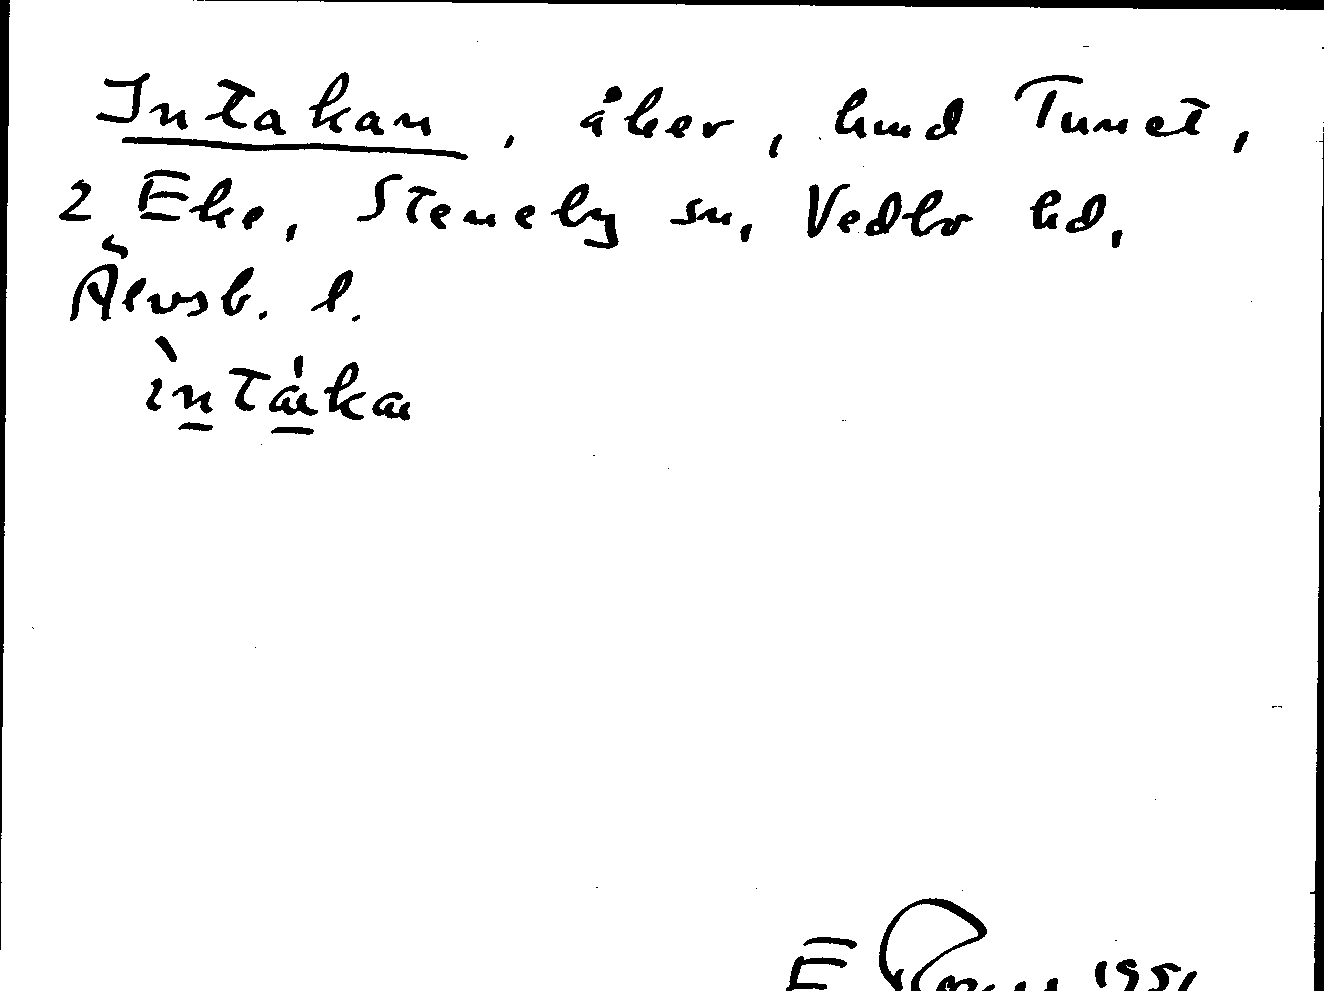 Intakan, åker, lmd Tunet,
2 Eke, Steneby sn, Vedbo hd,
Älvsb. l.
ìntákα
E 1951